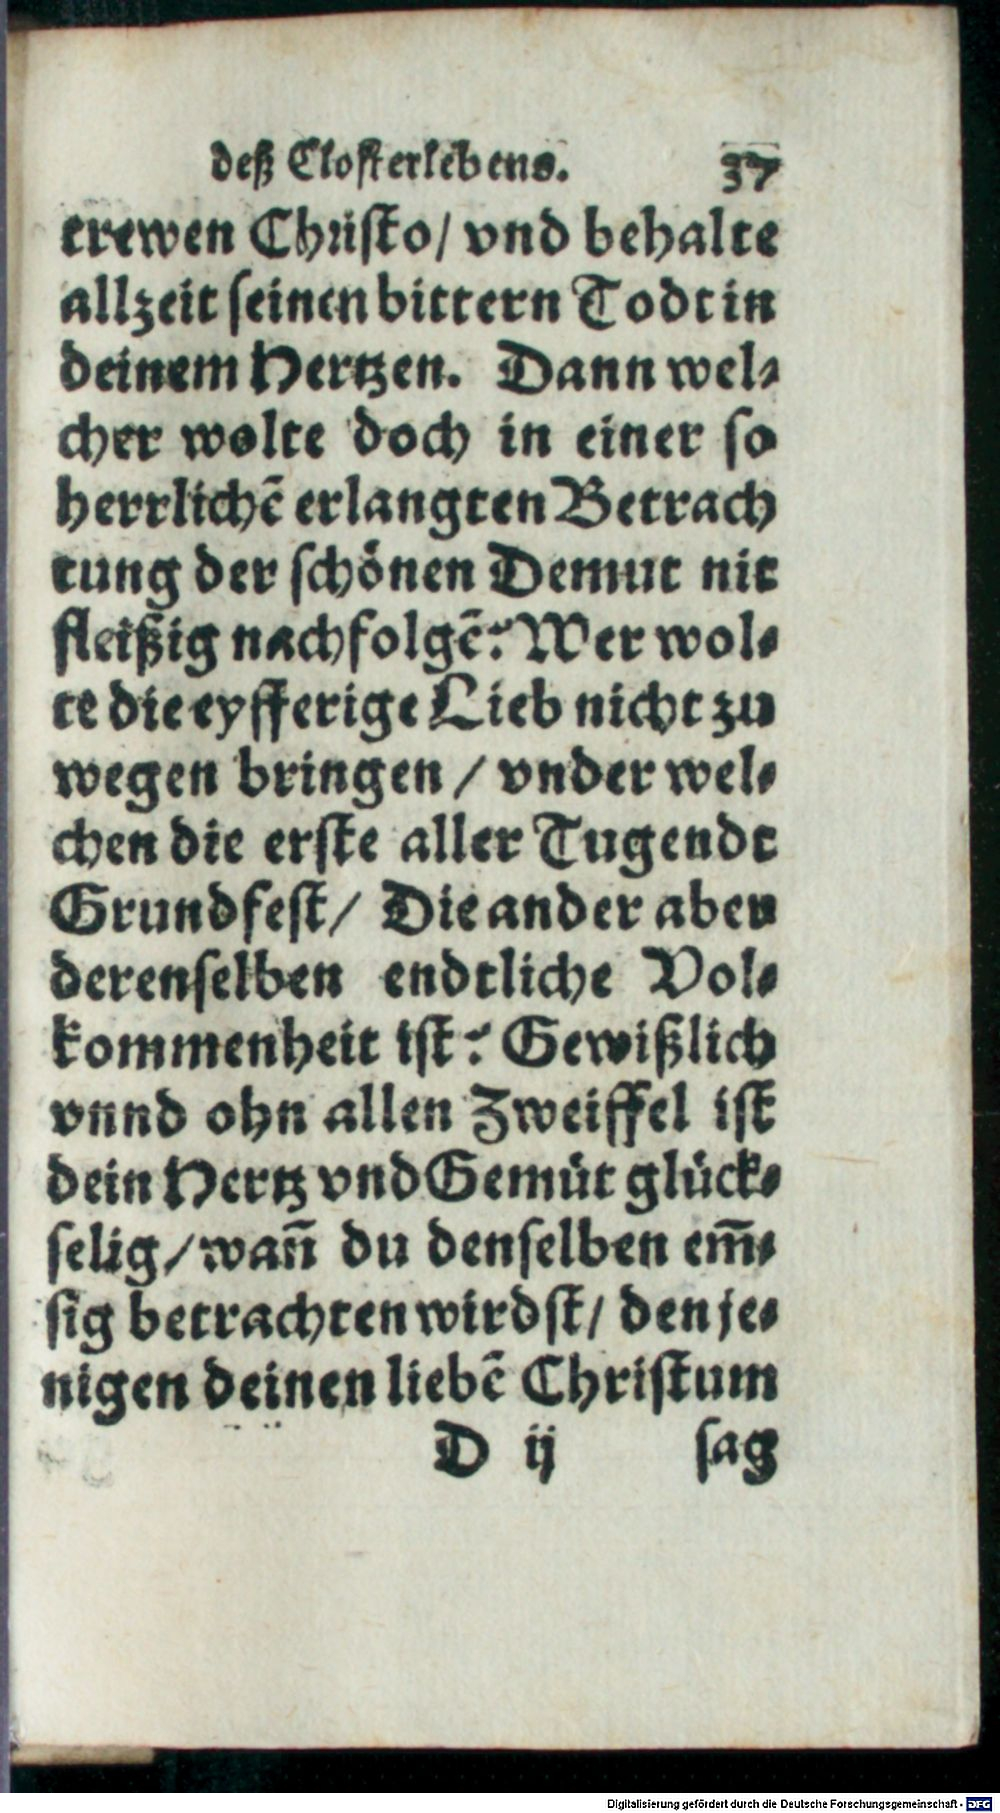 deß Closterlebens. 37
trewen Christo/ vnd behalte
allzeit seinen bittern Todt in
deinem Hertzen. Dann wel-
cher wolte doch in einer so
herrlichē erlangten Betrach
tung der schönen Demut nit
fleißig nachfolgē? Wer wol-
te die eyfferige Lieb nicht zu
wegen bringen / vnder wel-
chen die erste aller Tugendt
Grundfest/ Die ander aber
derenselben endtliche Vol-
kommenheit ist? Gewißlich
vnnd ohn allen Zweiffel ist
dein Hertz vnd Gemüt glück-
selig/ wañ du denselben em̃-
sig betrachten wirdst/ den je-
nigen deinen liebē Christum
D ij sag
Digitalisierung gefördert durch die Deutsche Forschungsgemeinschaft - DFG